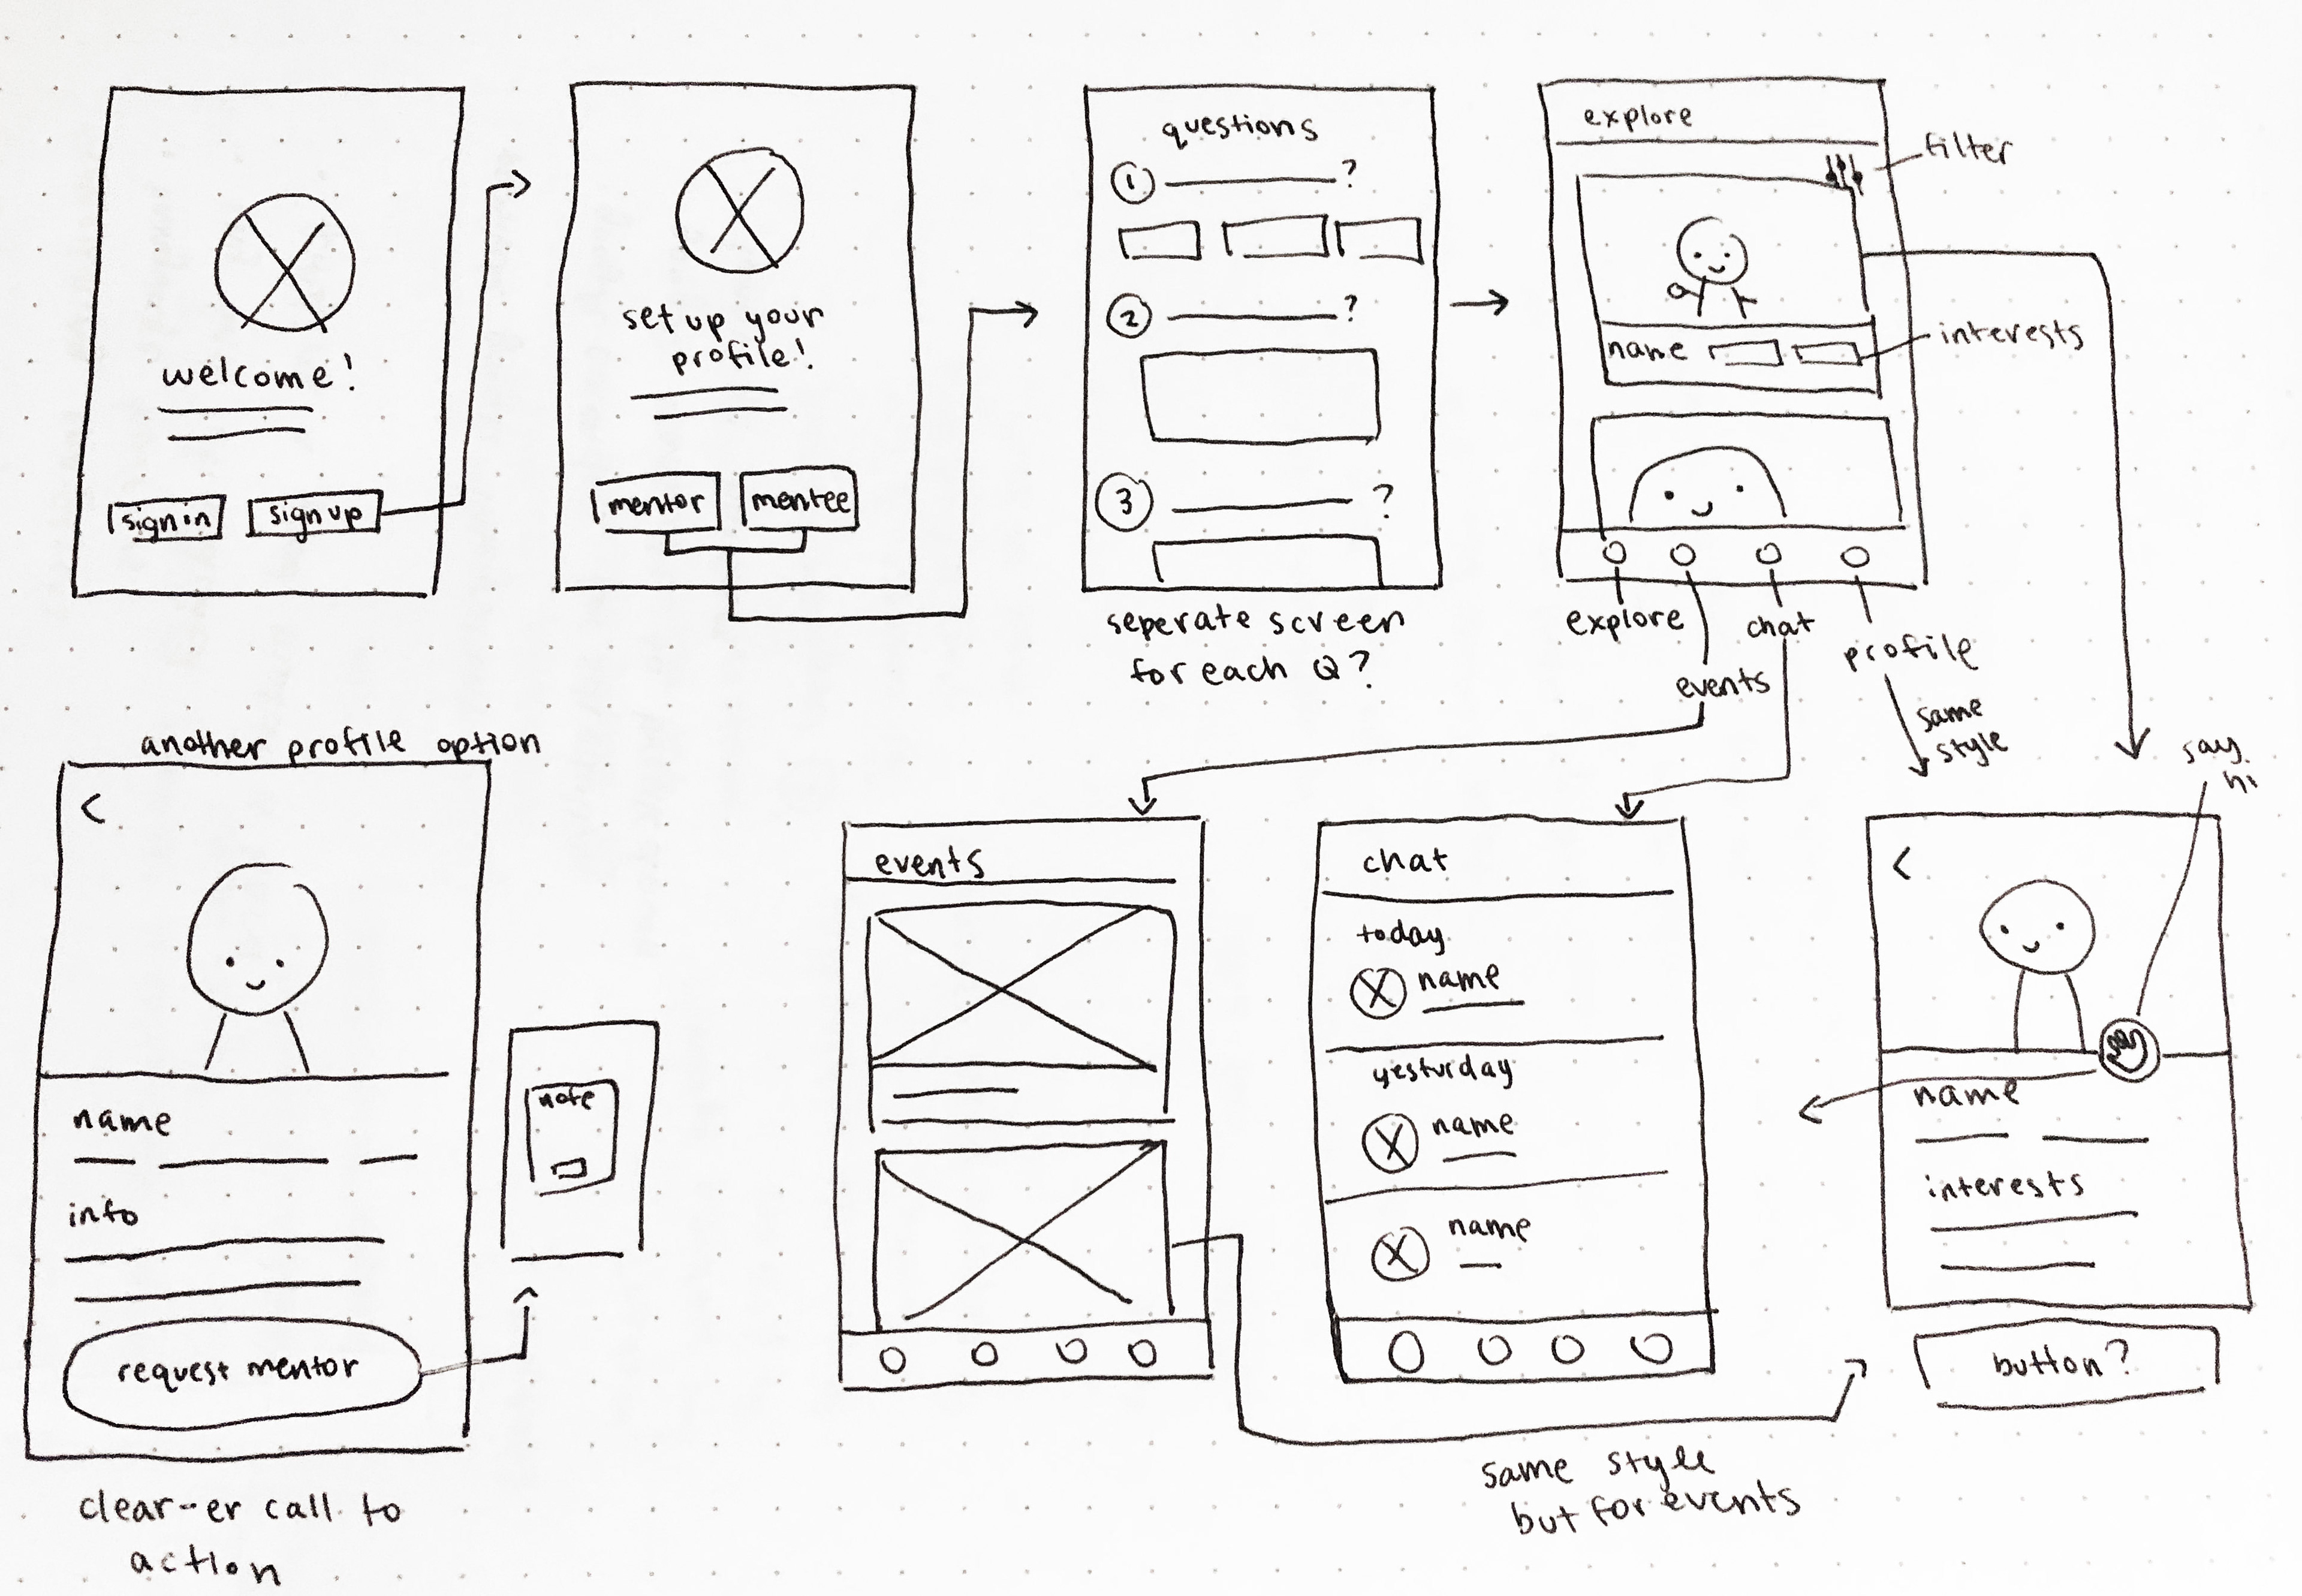 welcome!
sign in
sign up
set up your
profile!
mentor
mentee
questions
1
?
2
?
3
?
seperate screen
for each Q?
explore
filter
name
interests
explore
events
chat
profile
same
style
say
hi
another profile option
<
name
info
request mentor
note
clear-er call to
action
events
chat
today
name
yesturday
name
name
<
name
interests
button?
same style
but for events